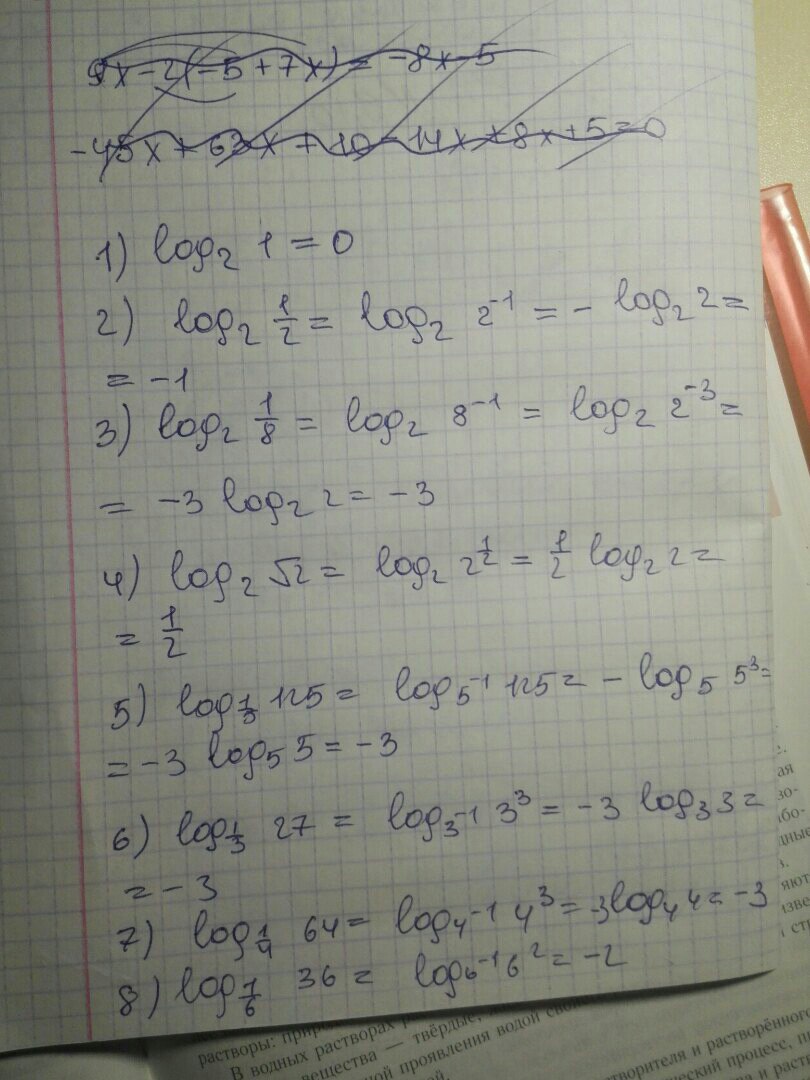 9x-2(-5+7x)=-8x-5
-45x+63x+10-14x+8x+5=0
1) log₂ 1 = 0
2) log₂ 1/2 = log₂ 2⁻¹ = - log₂ 2 =
= -1
3) log₂ 1/8 = log₂ 8⁻¹ = log₂ 2⁻³ =
= -3 log₂ 2 = -3
4) log₂ √2 = log₂ 2^(1/2) = 1/2 log₂ 2 =
= 1/2
5) log_(1/5) 125 = log_(5⁻¹) 125 = - log₅ 5³ =
= -3 log₅ 5 = -3
6) log_(1/3) 27 = log_(3⁻¹) 3³ = -3 log₃ 3 =
= -3
7) log_(1/4) 64 = log_(4⁻¹) 4³ = -3 log₄ 4 = -3
8) log_(1/6) 36 = log_(6⁻¹) 6² = -2
растворы:
В водных растворах
вещества — твёрдые,
проявления водой
растворителя и растворённого
ческий процесс,